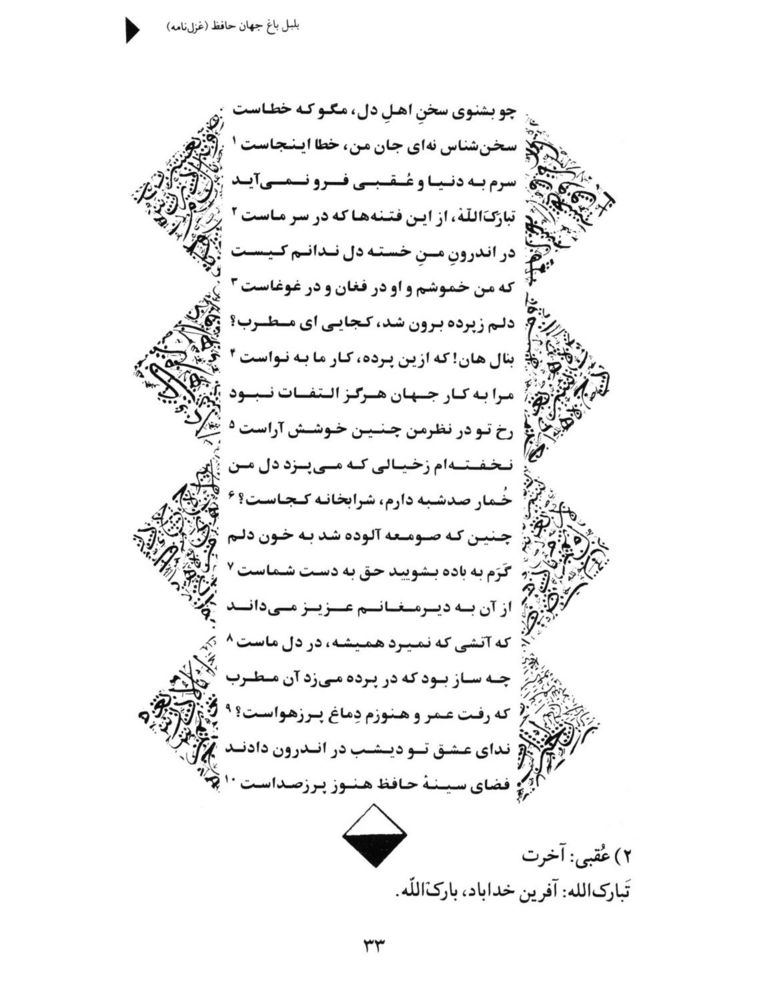 بلبل باغ جهان حافظ (غزل‌نامه)
چو بشنوی سخنِ اهلِ دل، مگو که خطاست
سخن‌شناس نه‌ای جان من، خطا اینجاست ۱
سرم به دنیا و عُقبی فرو نمی‌آید
تبارَک‌اللّه، از این فتنه‌ها که در سر ماست ۲
در اندرونِ منِ خسته دل ندانم کیست
که من خموشم و او در فغان و در غوغاست ۳
دلم زپرده برون شد، کجایی ای مطرب؟
بنال هان! که ازین پرده، کار ما به نواست ۴
مرا به کار جهان هرگز التفات نبود
رخ تو در نظرمن چنین خوشش آراست ۵
نخفته‌ام زخیالی که می‌پزد دل من
خُمار صدشبه دارم، شرابخانه کجاست؟ ۶
چنین که صومعه آلوده شد به خون دلم
گَرَم به باده بشویید حق به دست شماست ۷
از آن به دیرمغانم عزیز می‌داند
که آتشی که نمیرد همیشه، در دل ماست ۸
چه ساز بود که در پرده می‌زد آن مطرب
که رفت عمر و هنوزم دِماغ پرزهواست؟ ۹
ندای عشق تو دیشب در اندرون دادند
فضای سینهٔ حافظ هنوز پرزصداست ۱۰
۲) عُقبی: آخرت
تَبارک‌الله: آفرین خداباد، بارک‌اللّه.
۳۳